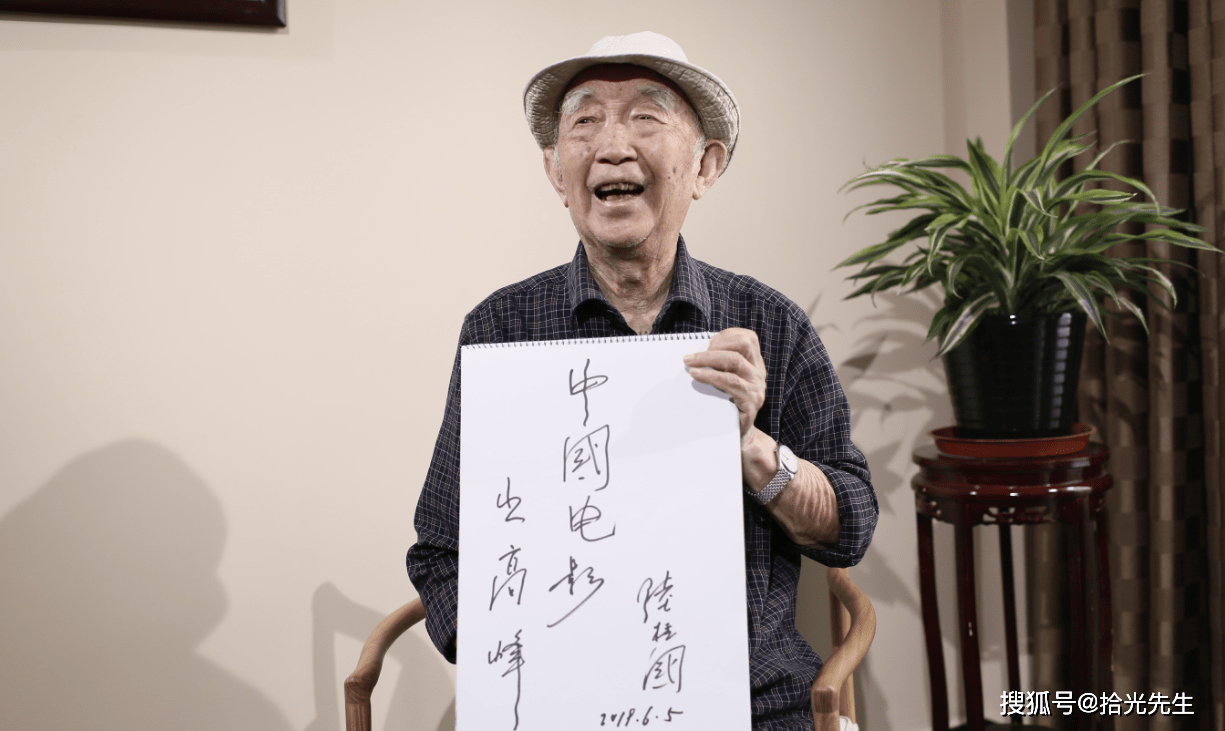 中國电影
出高峰
陸柱國
2019.6.5
搜狐号@拾光先生